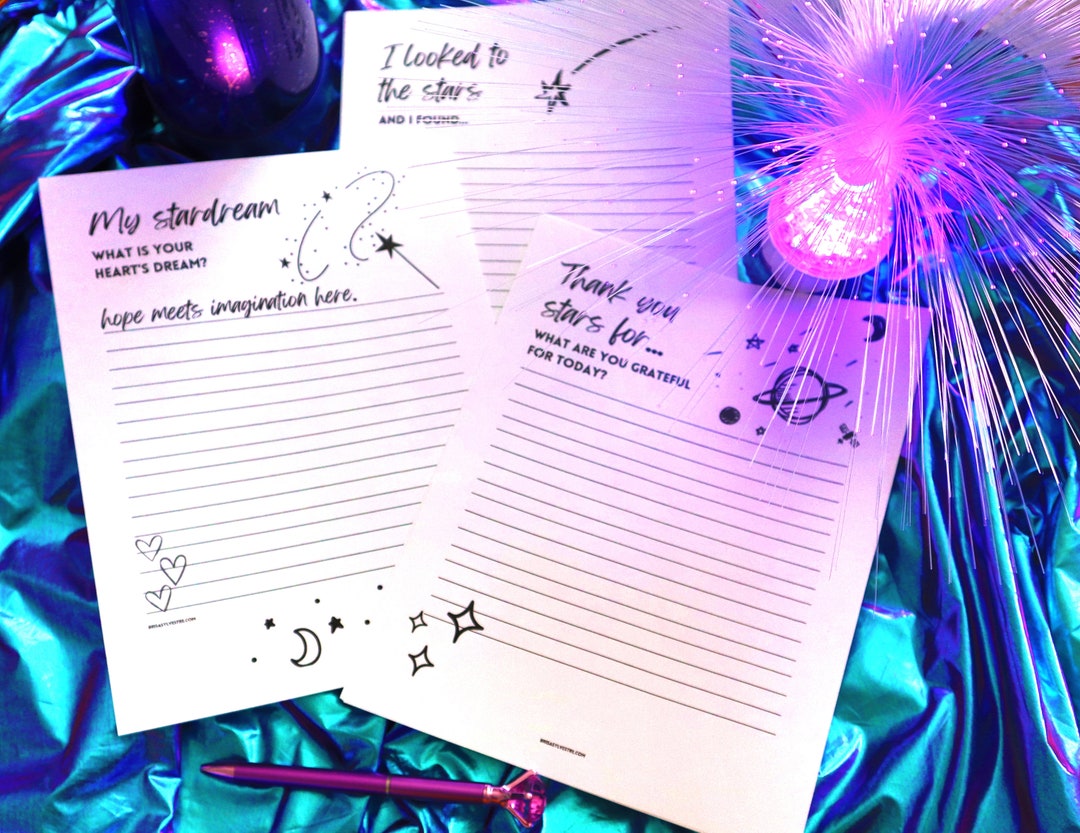 I looked to
the stars
AND I FOUND...
My stardream
WHAT IS YOUR
HEART'S DREAM?
hope meets imagination here.
Thank you
stars for...
WHAT ARE YOU GRATEFUL
FOR TODAY?